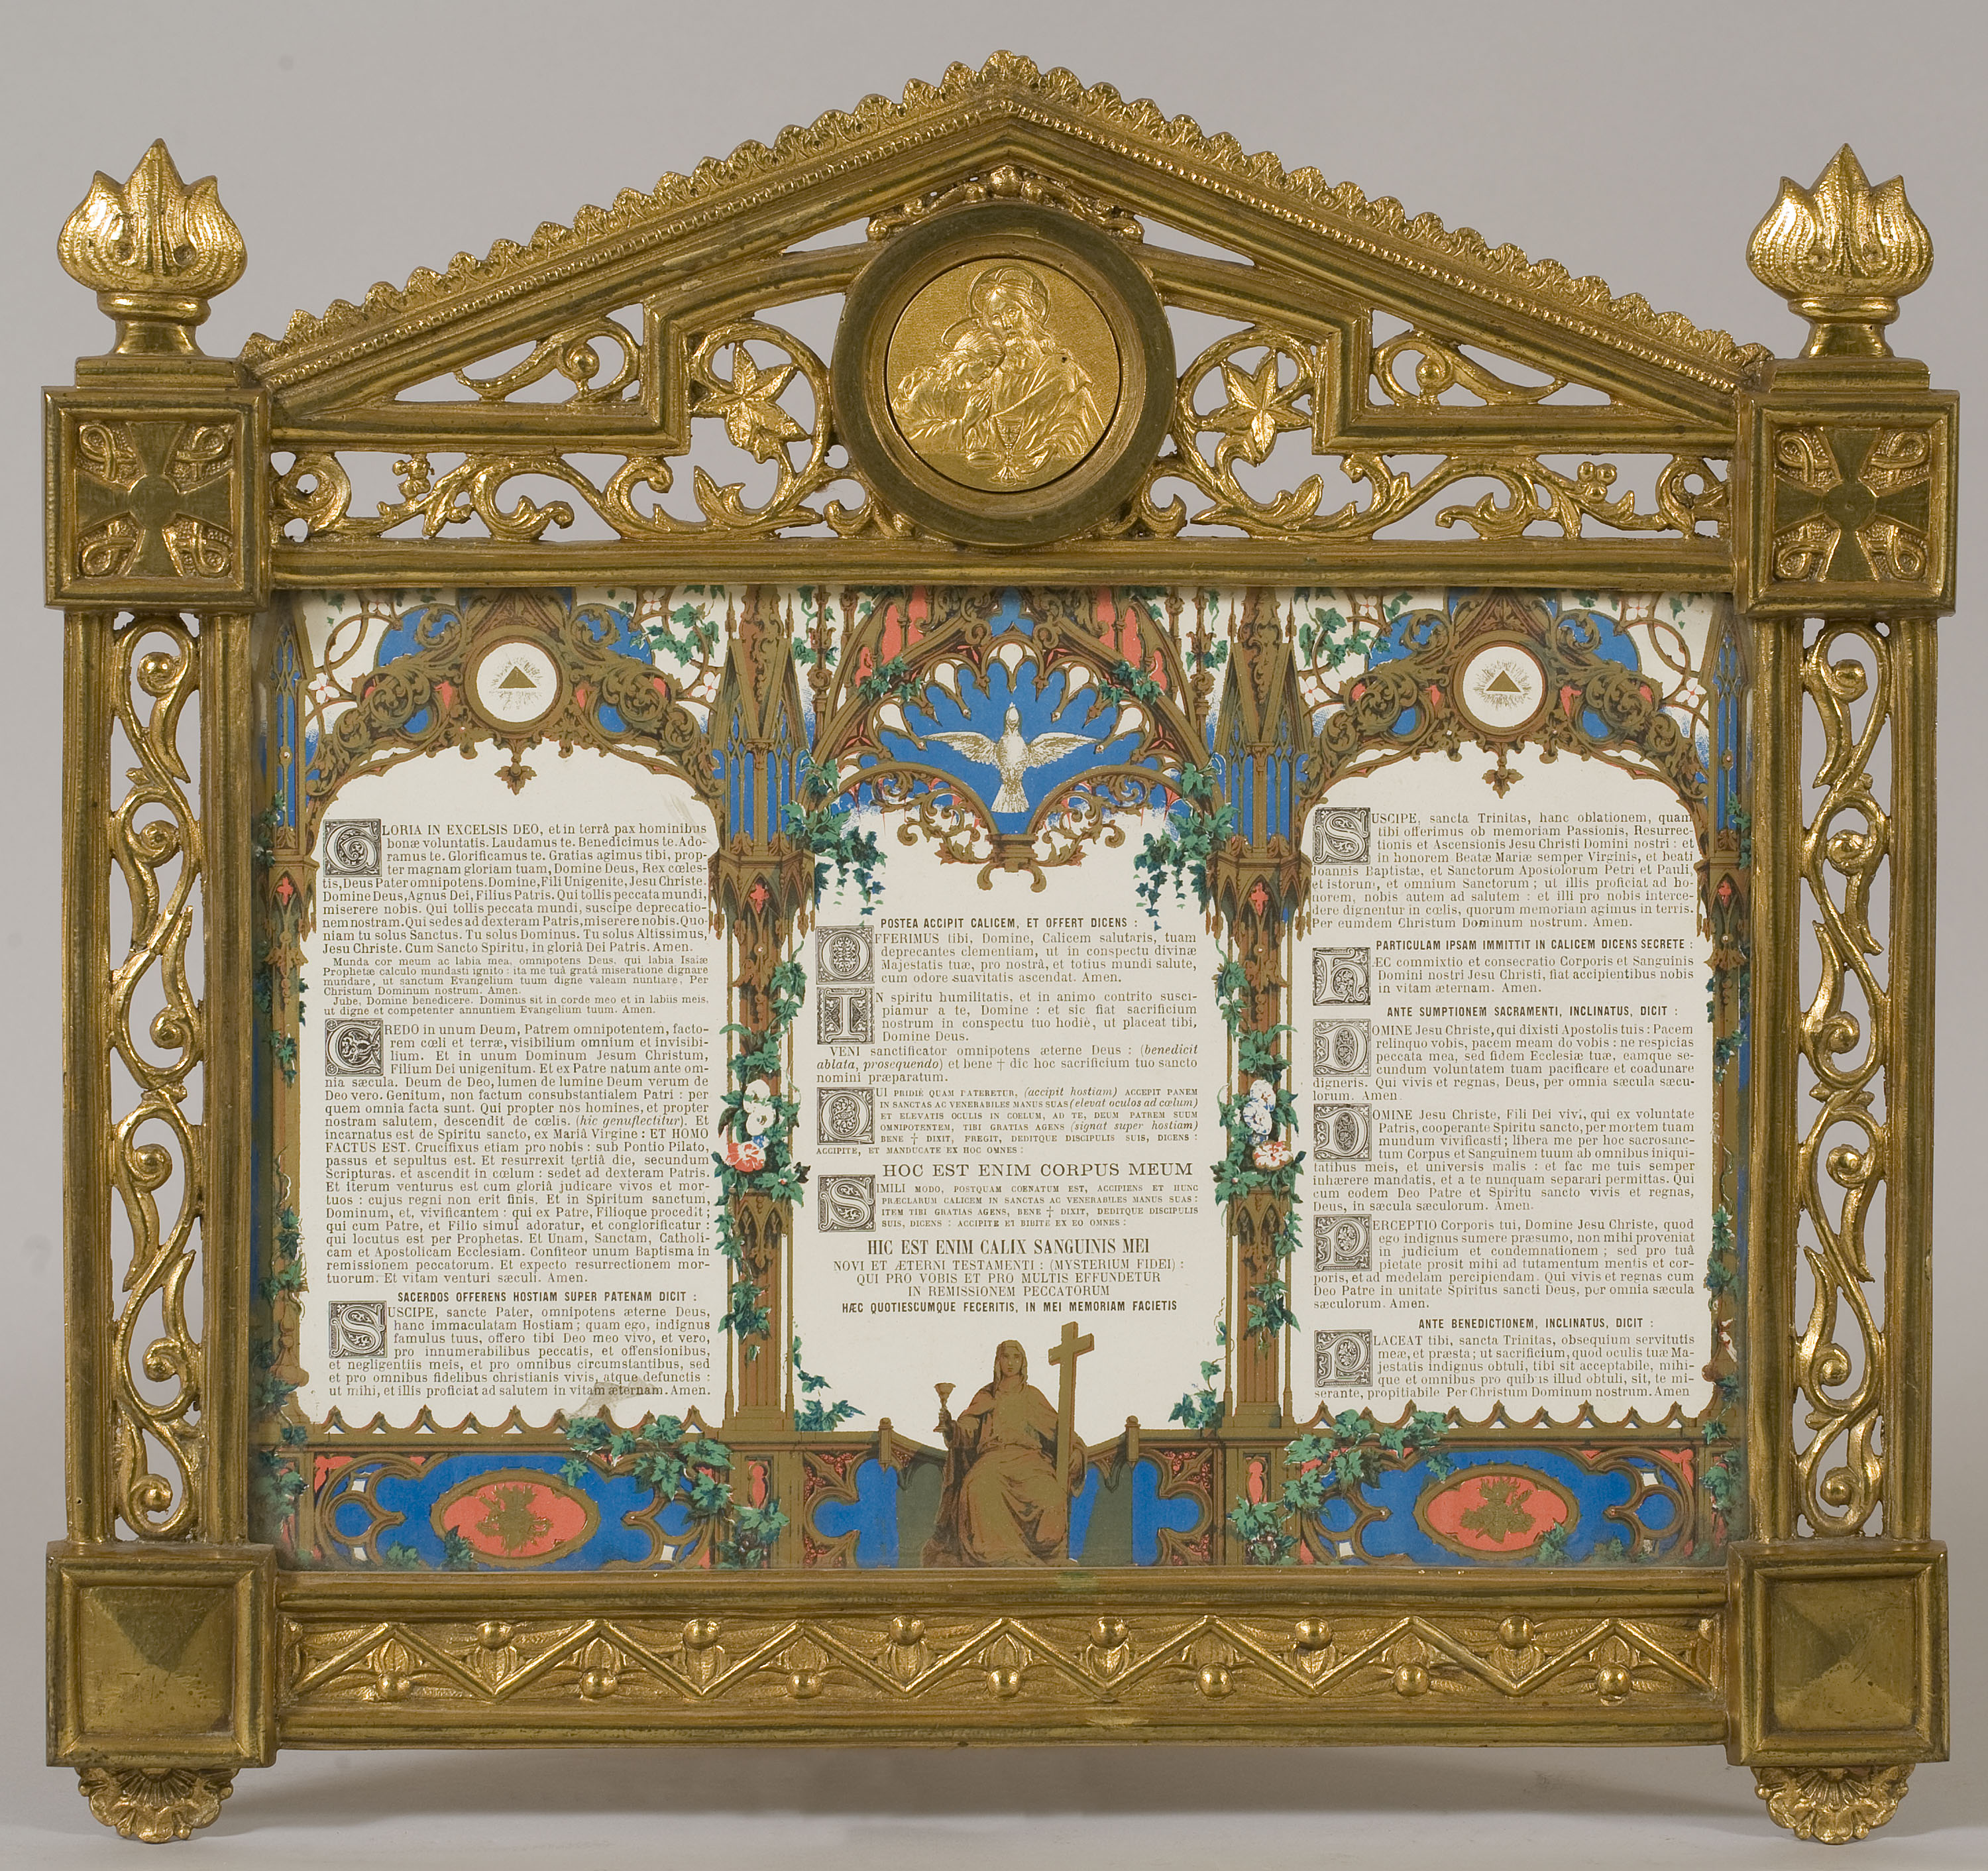 GLORIA IN EXCELSIS DEO, et in terrâ pax hominibus
bonæ voluntatis. Laudamus te. Benedicimus te. Ado-
ramus te. Glorificamus te. Gratias agimus tibi, prop-
ter magnam gloriam tuam, Domine Deus, Rex cœles-
tis, Deus Pater omnipotens. Domine, Fili Unigenite, Jesu Christe.
Domine Deus, Agnus Dei, Filius Patris. Qui tollis peccata mundi,
miserere nobis. Qui tollis peccata mundi, suscipe deprecatio-
nem nostram. Qui sedes ad dexteram Patris, miserere nobis. Quo-
niam tu solus Sanctus. Tu solus Dominus. Tu solus Altissimus,
Jesu Christe. Cum Sancto Spiritu, in gloriâ Dei Patris. Amen.
Munda cor meum ac labia mea, omnipotens Deus, qui labia Isaiæ
Prophetæ calculo mundasti ignito : ita me tuâ gratâ miseratione dignare
mundare, ut sanctum Evangelium tuum digne valeam nuntiare. Per
Christum Dominum nostrum. Amen.
Jube, Domine benedicere. Dominus sit in corde meo et in labiis meis,
ut digne et competenter annuntiem Evangelium tuum. Amen.
CREDO in unum Deum, Patrem omnipotentem, facto-
rem cœli et terræ, visibilium omnium et invisibi-
lium. Et in unum Dominum Jesum Christum,
Filium Dei unigenitum. Et ex Patre natum ante om-
nia sæcula. Deum de Deo, lumen de lumine Deum verum de
Deo vero. Genitum, non factum consubstantialem Patri : per
quem omnia facta sunt. Qui propter nos homines, et propter
nostram salutem, descendit de cœlis. (hic genuflectitur). Et
incarnatus est de Spiritu sancto, ex Mariâ Virgine : ET HOMO
FACTUS EST. Crucifixus etiam pro nobis : sub Pontio Pilato,
passus et sepultus est. Et resurrexit tertiâ die, secundum
Scripturas. et ascendit in cœlum : sedet ad dexteram Patris.
Et iterum venturus est cum gloriâ judicare vivos et mor-
tuos : cujus regni non erit finis. Et in Spiritum sanctum,
Dominum, et, vivificantem : qui ex Patre, Filioque procedit ;
qui cum Patre, et Filio simul adoratur, et conglorificatur :
qui locutus est per Prophetas. Et Unam, Sanctam, Catholi-
cam et Apostolicam Ecclesiam. Confiteor unum Baptisma in
remissionem peccatorum. Et expecto resurrectionem mor-
tuorum. Et vitam venturi sæculi. Amen.
SACERDOS OFFERENS HOSTIAM SUPER PATENAM DICIT :
SUSCIPE, sancte Pater, omnipotens æterne Deus,
hanc immaculatam Hostiam ; quam ego, indignus
famulus tuus, offero tibi Deo meo vivo, et vero,
pro innumerabilibus peccatis, et offensionibus,
et negligentiis meis, et pro omnibus circumstantibus, sed
et pro omnibus fidelibus christianis vivis, atque defunctis :
ut mihi, et illis proficiat ad salutem in vitam æternam. Amen.
POSTEA ACCIPIT CALICEM, ET OFFERT DICENS :
OFFERIMUS tibi, Domine, Calicem salutaris, tuam
deprecantes clementiam, ut in conspectu divinæ
Majestatis tuæ, pro nostrâ, et totius mundi salute,
cum odore suavitatis ascendat. Amen.
IN spiritu humilitatis, et in animo contrito susci-
piamur a te, Domine : et sic fiat sacrificium
nostrum in conspectu tuo hodiè, ut placeat tibi,
Domine Deus.
VENI sanctificator omnipotens æterne Deus : (benedicit
ablata, prosequendo) et bene † dic hoc sacrificium tuo sancto
nomini præparatum.
QUI PRIDIE QUAM PATERETUR, (accipit hostiam) ACCEPIT PANEM
IN SANCTAS AC VENERABILES MANUS SUAS (elevat oculos ad cœlum)
ET ELEVATIS OCULIS IN COELUM, AD TE, DEUM PATREM SUUM
OMNIPOTENTEM, TIBI GRATIAS AGENS (signat super hostiam)
BENE † DIXIT, FREGIT, DEDITQUE DISCIPULIS SUIS, DICENS :
ACCIPITE, ET MANDUCATE EX HOC OMNES :
HOC EST ENIM CORPUS MEUM
SIMILI MODO, POSTQUAM COENATUM EST, ACCIPIENS ET HUNC
PRÆCLARUM CALICEM IN SANCTAS AC VENERABILES MANUS SUAS :
ITEM TIBI GRATIAS AGENS, BENE † DIXIT, DEDITQUE DISCIPULIS
SUIS, DICENS : ACCIPITE ET BIBITE EX EO OMNES :
HIC EST ENIM CALIX SANGUINIS MEI
NOVI ET ÆTERNI TESTAMENTI : (MYSTERIUM FIDEI) :
QUI PRO VOBIS ET PRO MULTIS EFFUNDETUR
IN REMISSIONEM PECCATORUM
HÆC QUOTIESCUMQUE FECERITIS, IN MEI MEMORIAM FACIETIS
SUSCIPE, sancta Trinitas, hanc oblationem, quam
tibi offerimus ob memoriam Passionis, Resurrec-
tionis et Ascensionis Jesu Christi Domini nostri : et
in honorem Beatæ Mariæ semper Virginis, et beati
Joannis Baptistæ, et Sanctorum Apostolorum Petri et Pauli,
et istorum, et omnium Sanctorum ; ut illis proficiat ad ho-
norem, nobis autem ad salutem : et illi pro nobis interce-
dere dignentur in cœlis, quorum memoriam agimus in terris.
Per eumdem Christum Dominum nostrum. Amen.
PARTICULAM IPSAM IMMITTIT IN CALICEM DICENS SECRETE :
HÆC commixtio et consecratio Corporis et Sanguinis
Domini nostri Jesu Christi, fiat accipientibus nobis
in vitam æternam. Amen.
ANTE SUMPTIONEM SACRAMENTI, INCLINATUS, DICIT :
DOMINE Jesu Christe, qui dixisti Apostolis tuis : Pacem
relinquo vobis, pacem meam do vobis : ne respicias
peccata mea, sed fidem Ecclesiæ tuæ, eamque se-
cundum voluntatem tuam pacificare et coadunare
digneris. Qui vivis et regnas, Deus, per omnia sæcula sæcu-
lorum. Amen.
DOMINE Jesu Christe, Fili Dei vivi, qui ex voluntate
Patris, cooperante Spiritu sancto, per mortem tuam
mundum vivificasti ; libera me per hoc sacrosanc-
tum Corpus et Sanguinem tuum ab omnibus iniqui-
tatibus meis, et universis malis : et fac me tuis semper
inhærere mandatis, et a te nunquam separari permittas. Qui
cum eodem Deo Patre et Spiritu sancto vivis et regnas,
Deus, in sæcula sæculorum. Amen.
PERCEPTIO Corporis tui, Domine Jesu Christe, quod
ego indignus sumere præsumo, non mihi proveniat
in judicium et condemnationem ; sed pro tuâ
pietate prosit mihi ad tutamentum mentis et cor-
poris, et ad medelam percipiendam. Qui vivis et regnas cum
Deo Patre in unitate Spiritus sancti Deus, per omnia sæcula
sæculorum. Amen.
ANTE BENEDICTIONEM, INCLINATUS, DICIT :
PLACEAT tibi, sancta Trinitas, obsequium servitutis
meæ, et præsta ; ut sacrificium, quod oculis tuæ Ma-
jestatis indignus obtuli, tibi sit acceptabile, mihi-
que et omnibus pro quibus illud obtuli, sit, te mi-
serante, propitiabile Per Christum Dominum nostrum. Amen